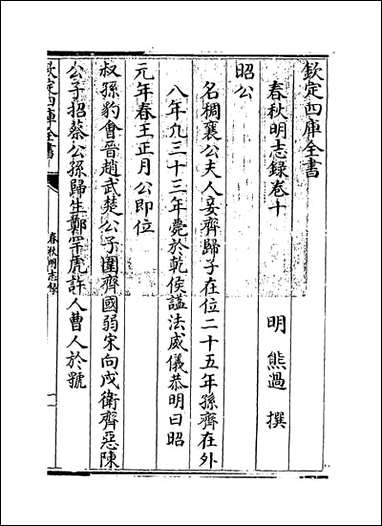 欽定四庫全書
春秋明志録卷十
明 熊過 撰
昭公
名稠襄公夫人妾齊歸子在位二十五年孫齊在外
八年凡三十三年薨於乾侯諡法威儀恭明曰昭
元年春王正月公即位
叔孫豹會晉趙武楚公子圍齊國弱宋向戌衛齊惡陳
公子招蔡公孫歸生鄭罕虎許人曹人於虢
欽定四庫全書
春秋明志録
一